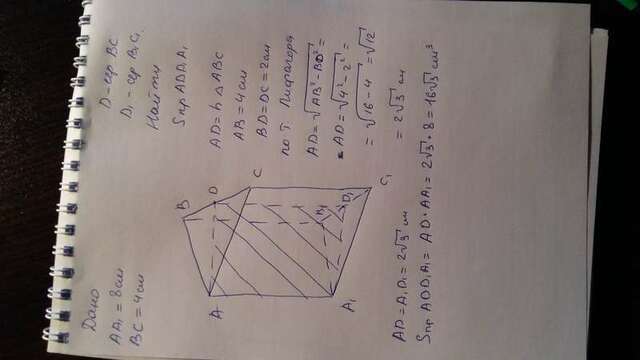 Дано
AA₁ = 8см
BC = 4см
D - сер. BC.
D₁ - сер B₁C₁
Найти
Sпр ADD₁A₁
B
D
C
A
B₁
D₁
C₁
A₁
AD = h △ABC
AB = 4см
BD = DC = 2см
по т. Пифагора
AD = √AB² - BD² =
AD = √4² - 2² =
= √16 - 4 = √12
= 2√3 см
AD = A₁D₁ = 2√3 см
Sпр ADD₁A₁ = AD • AA₁ = 2√3 • 8 = 16√3 см²